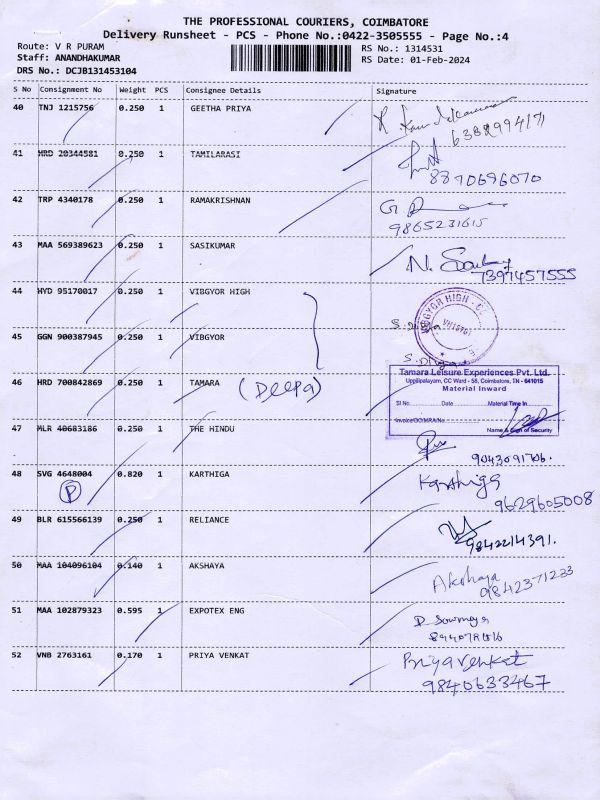 THE PROFESSIONAL COURIERS, COIMBATORE
Delivery Runsheet - PCS - Phone No.:0422-3505555 - Page No.:4
Route: V R PURAM RS No.: 1314531
Staff: ANANDHAKUMAR RS Date: 01-Feb-2024
DRS No.: DCJB131453104
S No Consignment No Weight PCS Consignee Details Signature
40 TNJ 1215756 0.250 1 GEETHA PRIYA
41 HRD 20344581 0.250 1 TAMILARASI
8870696070
42 TRP 4340178 0.250 1 RAMAKRISHNAN
9865231615
43 MAA 569389623 0.250 1 SASIKUMAR
7397457555
44 HYD 95170017 0.250 1 VIBGYOR HIGH
VIBGYOR HIGH
45 GGN 900387945 0.250 1 VIBGYOR
46 HRD 700842869 0.250 1 TAMARA (Deepa)
Tamara Leisure Experiences Pvt. Ltd.
Uppilipalayam, CC Ward - 58, Coimbatore, TN - 641015
Material Inward
Sl No. Date Material Time In
Invoice/DC/MRA/No
Name & Sign of Security
47 MLR 40683186 0.250 1 THE HINDU
9043091706.
48 SVG 4648004 0.820 1 KARTHIGA Karthiga
P 9629605008
49 BLR 615566139 0.250 1 RELIANCE
9842214391.
50 MAA 104096104 0.140 1 AKSHAYA Akshaya
9842371233
51 MAA 102879323 0.595 1 EXPOTEX ENG D Sowmya
52 VNB 2763161 0.170 1 PRIYA VENKAT Priya Venkat
9840633467